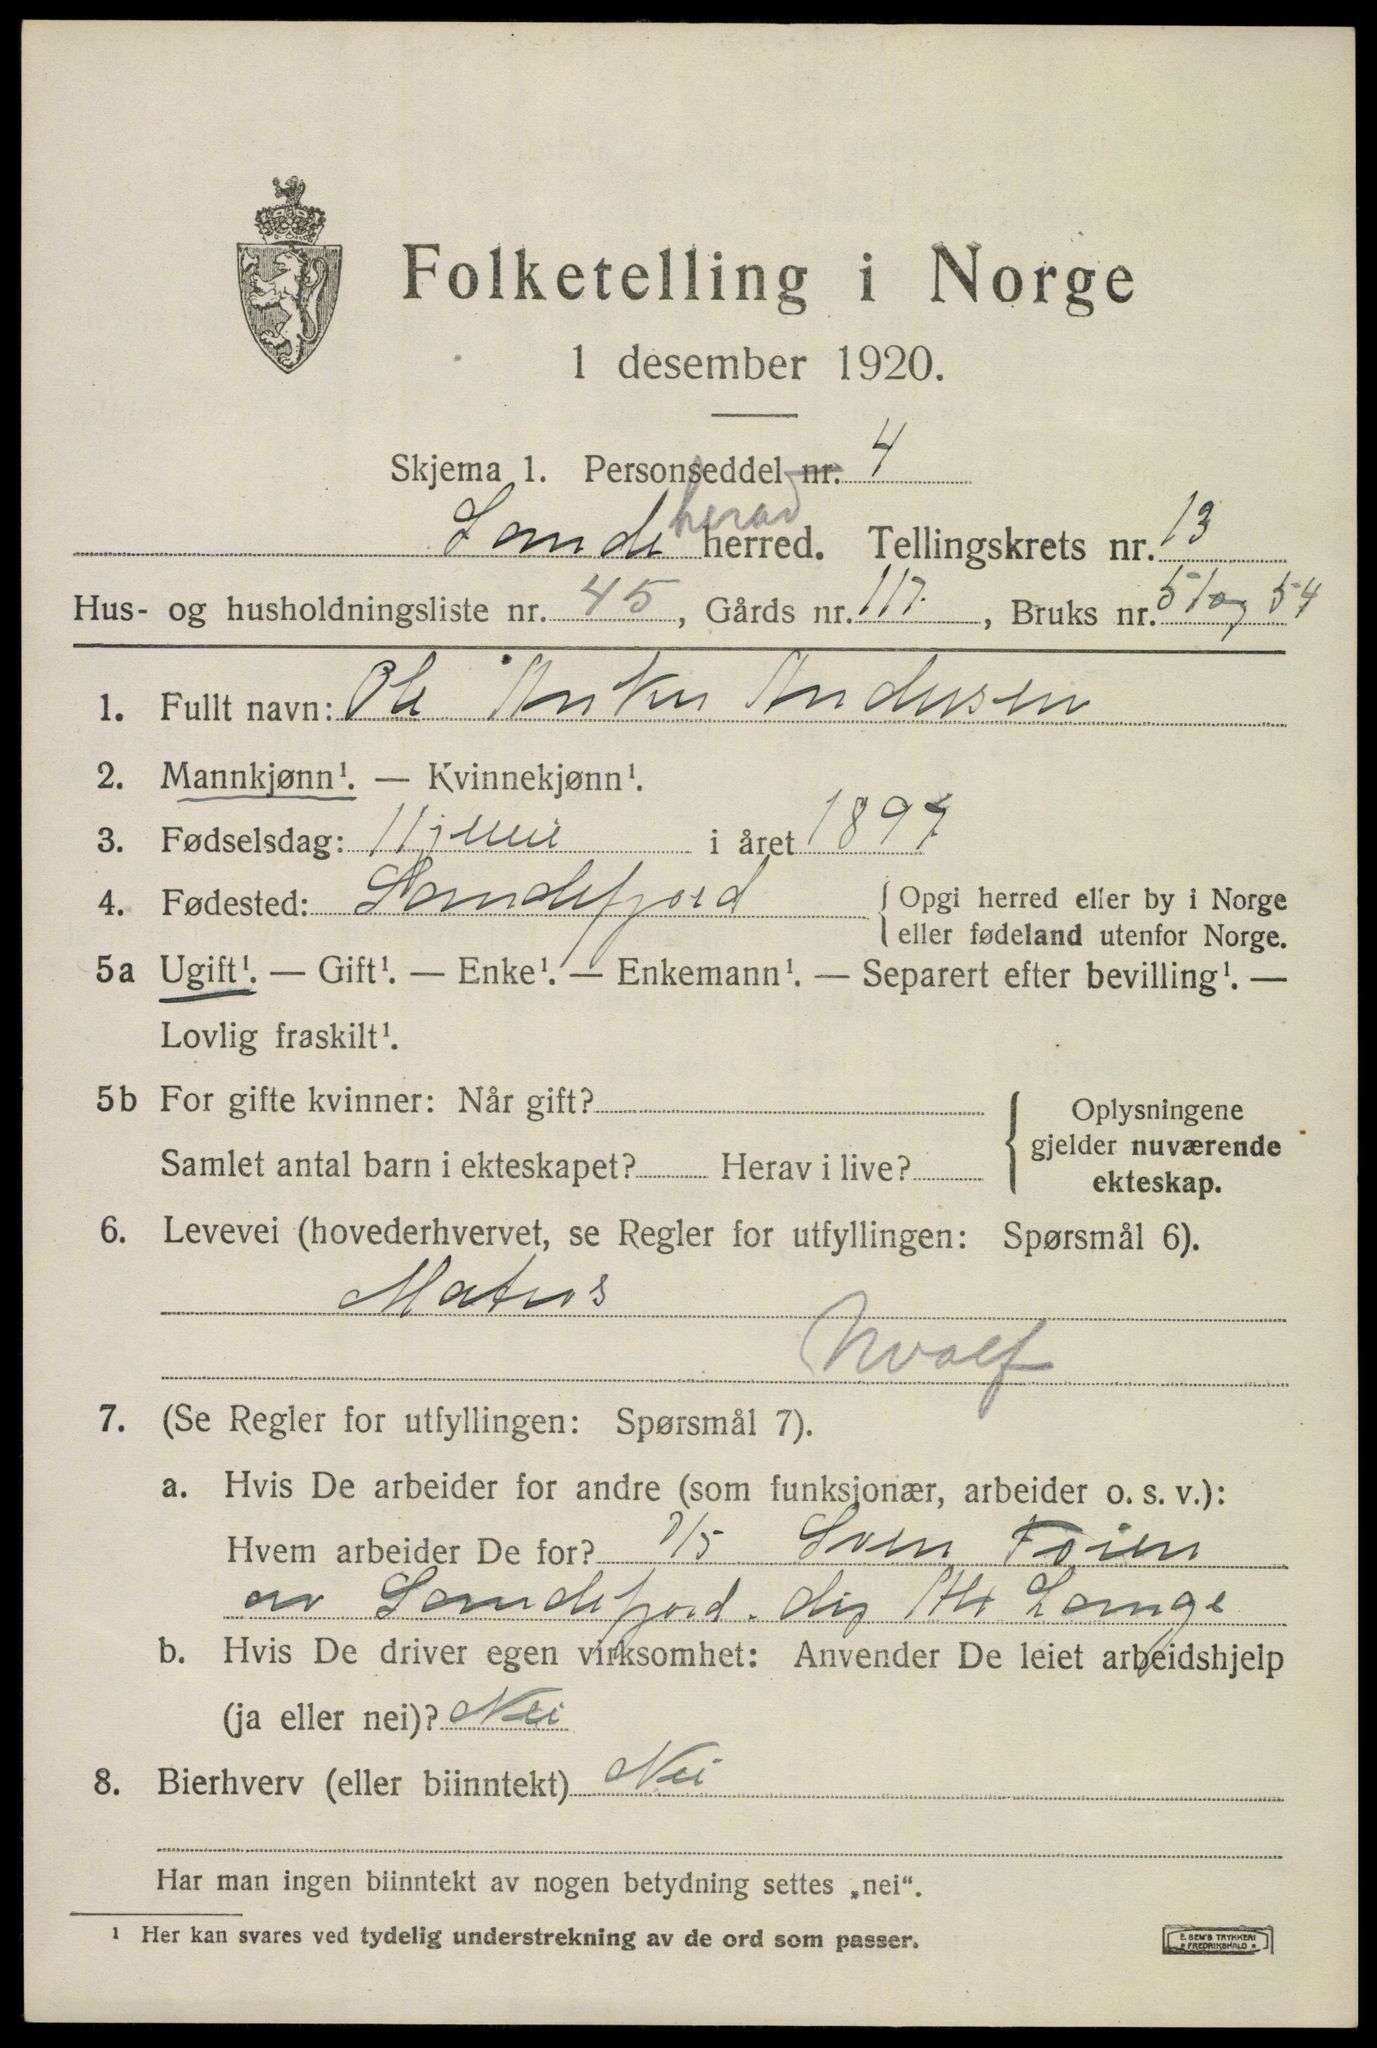 Folketelling i Norge
1 desember 1920.
Skjema 1. Personseddel nr. 4
Sande herad herred. Tellingskrets nr. 13
Hus- og husholdningsliste nr. 45, Gårds nr. 117, Bruks nr. 51 og 54
1. Fullt navn: Ole Anker Andersen
2. Mannkjønn¹. — Kvinnekjønn¹.
3. Fødselsdag: 11 juni i året 1897
4. Fødested: Sandefjord {Opgi herred eller by i Norge
eller fødeland utenfor Norge.
5a Ugift¹. — Gift¹. — Enke¹. — Enkemann¹. — Separert efter bevilling¹. —
Lovlig fraskilt¹.
5b For gifte kvinner: Når gift? { Oplysningene
gjelder nuværende
Samlet antal barn i ekteskapet? Herav i live? ekteskap.
6. Levevei (hovederhvervet, se Regler for utfyllingen: Spørsmål 6).
Matros
Hvalf
7. (Se Regler for utfyllingen: Spørsmål 7).
a. Hvis De arbeider for andre (som funksjonær, arbeider o. s. v.):
Hvem arbeider De for? D/S Sven Foien
av Sandefjord. disp Alx Lange
b. Hvis De driver egen virksomhet: Anvender De leiet arbeidshjelp
(ja eller nei)? Nei
8. Bierhverv (eller biinntekt) Nei
Har man ingen biinntekt av nogen betydning settes „nei“.
¹ Her kan svares ved tydelig understrekning av de ord som passer.
E. SEM'S TRYKKERI
FREDRIKSHALD